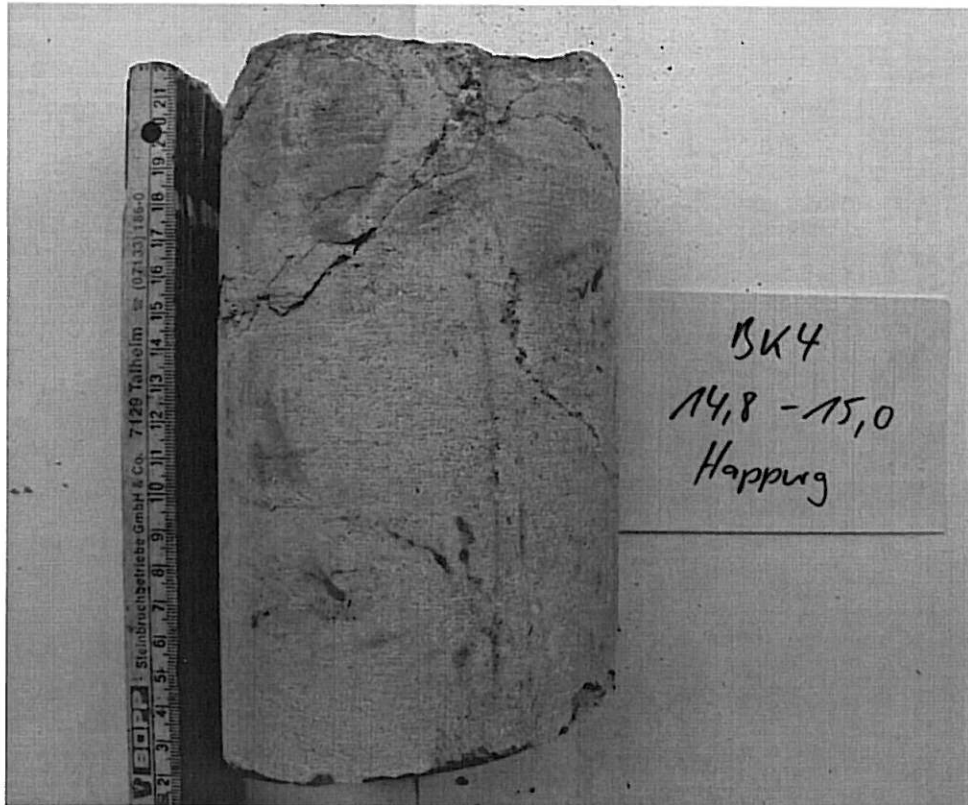 BK4
14,8 - 15,0
Happurg
BOPP Steinbruchbetriebe GmbH & Co. 7129 Talheim ☎ (07133) 186-0
2 3 4 5 6 7 8 9 10 11 12 13 14 15 16 17 18 19 20 21